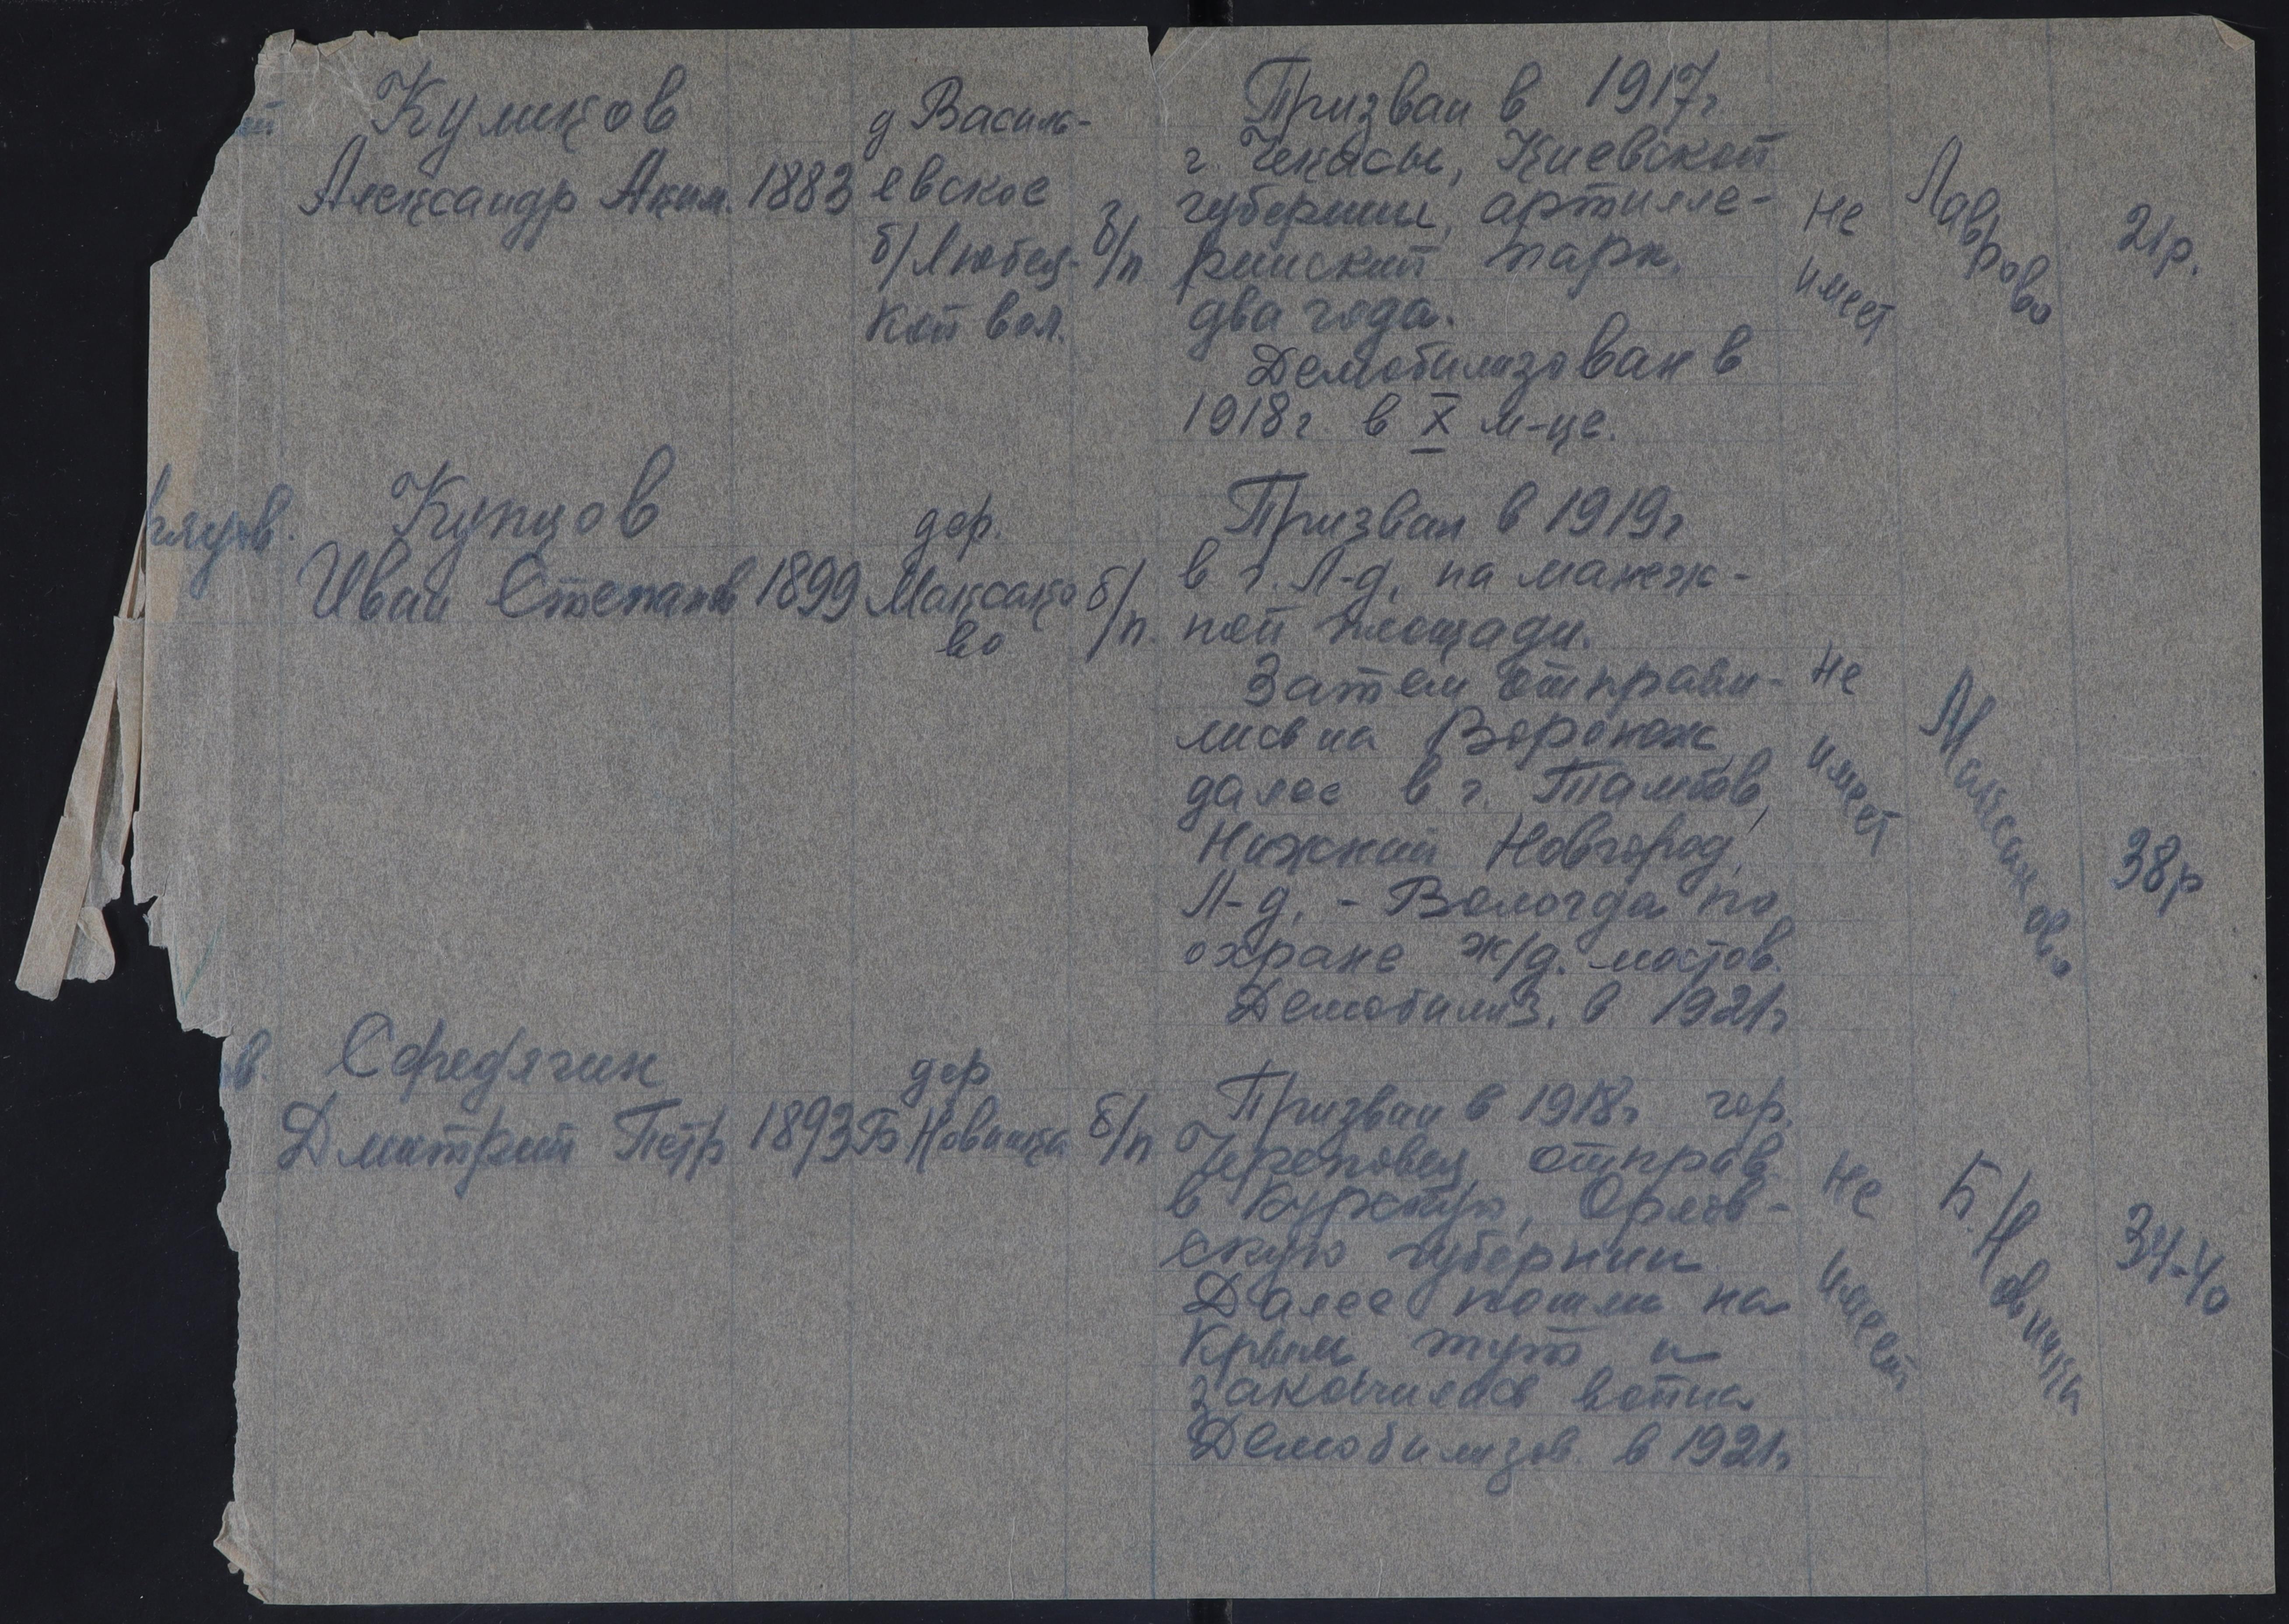 Куликов
Александр Аким. 1883
д Василь-
евское
б/Любец-
кой вол.
б/п
Призван в 1917г
г. Чекасы, Киевской
губернии, артилле-
рийский парк,
два года.
Демобилизован в
1918г. в X м-це.
не
имеет
Лаврово
21р.
Купцов
Иван Степанов 1899
дер.
Максако
во
б/п.
Призван в 1919г
в г. Л-д, на манеж-
ной площади.
Затем отправи-
лись на Воронеж
далее в г. Тамбов,
Нижний Новгород,
Л-д, - Вологда по
охране ж/д. мостов.
Демобилиз. в 1921г
не
имеет
Максаково
38р
в.
Середягин
Дмитрий Петр 1893
дер
Б Новинка
б/п
Призван в 1918г гор.
Череповец отправ
в Орлов-
скую губернии
Далее пошли на
Крым, тут и
закончилась война
Демобилизов. в 1921г
не
имеет
Б./Новинка
34-40